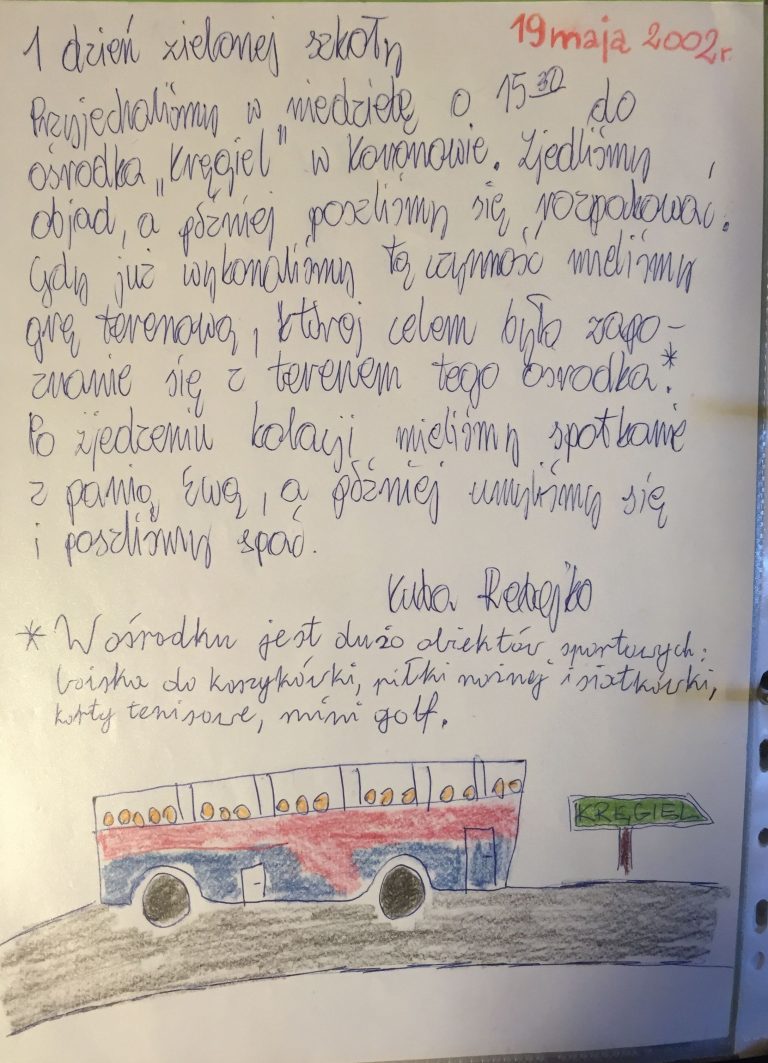 1 dzień zielonej szkoły
19 maja 2002r.
Przyjechaliśmy w niedzielę o 15 30 do
ośrodka „Kręgiel" w Koronowie. Zjedliśmy
objad, a później poszliśmy się rozpakować.
Gdy już wykonaliśmy tą czynność mieliśmy
grę terenową, której celem było zapo-
znanie się z terenem tego ośrodka.*
Po zjedzeniu kolacji mieliśmy spotkanie
z panią Ewą, a później umyliśmy się
i poszliśmy spać.
Kuba
* W ośrodku jest dużo obiektów sportowych:
boiska do koszykówki, piłki nożnej i siatkówki,
korty tenisowe, mini golf.
KRĘGIEL